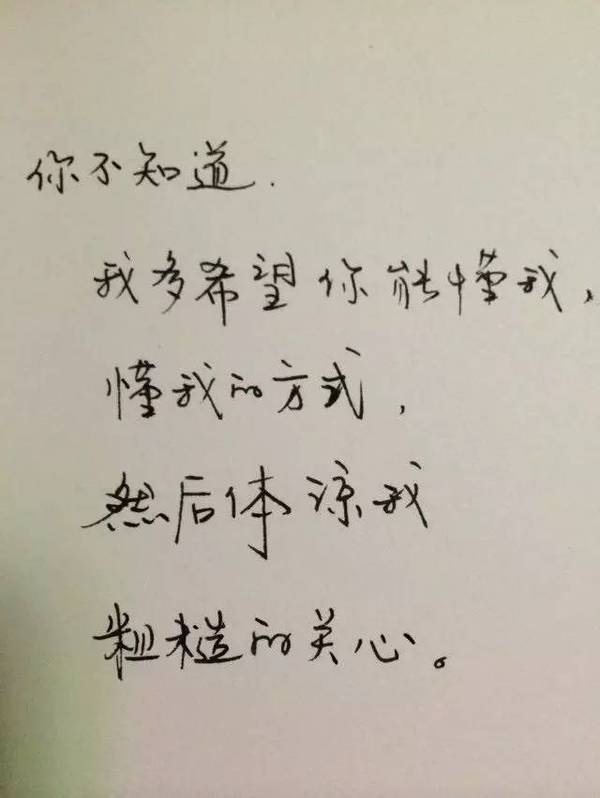 你不知道.
我多希望你能懂我,
懂我的方式,
然后体谅我
粗糙的关心。